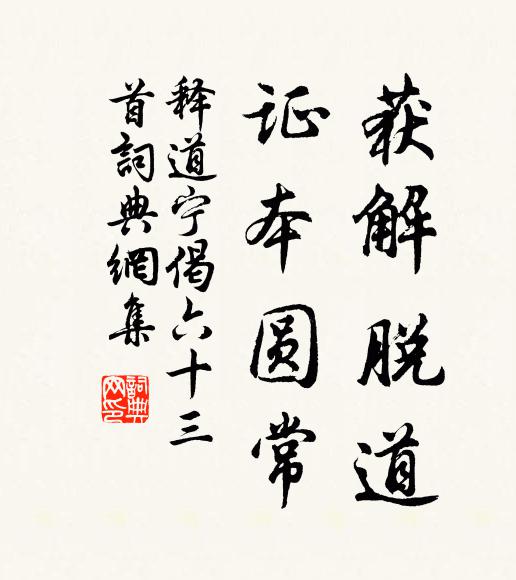 获解脱道
证本圆常
释道宁偈六十三
首詞典網集
詞典
网印